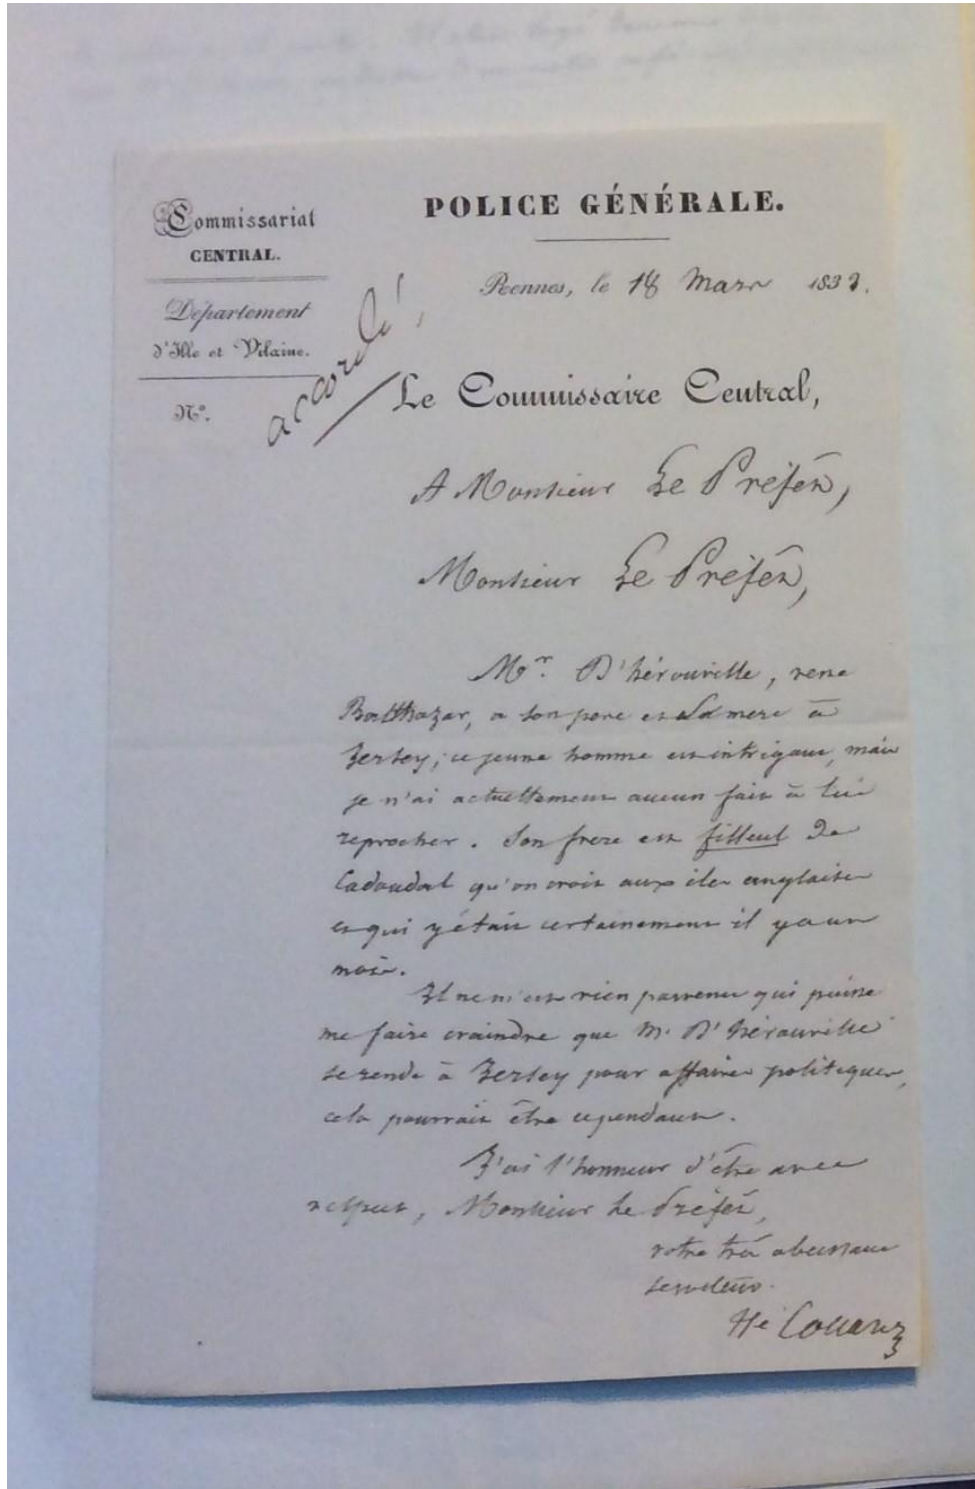 Commissariat
CENTRAL.
Département
d'Ille et Vilaine.
N°.
accordé!
POLICE GÉNÉRALE.
Rennes, le 18 Mars 183
Le Commissaire Central,
A Monsieur Le Préfet,
Monsieur Le Préfet,
Mr. D'hérouville, rene
Balthazar, a son pere et sa mere à
Jersey; ce jeune homme est intrigant, mais
je n'ai actuellement aucun fait à lui
reprocher. Son frere est filleul de
Cadoudal qu'on croit aux iles anglaises
et qui y était certainement il y a un
mois.
Il ne m'est rien parvenu qui puisse
me faire craindre que M. D'hérouville
se rende à Jersey pour affaires politiques,
cela pourrait être cependant.
J'ai l'honneur d'être avec
respect, Monsieur Le Préfet,
votre très obeissant
serviteur.